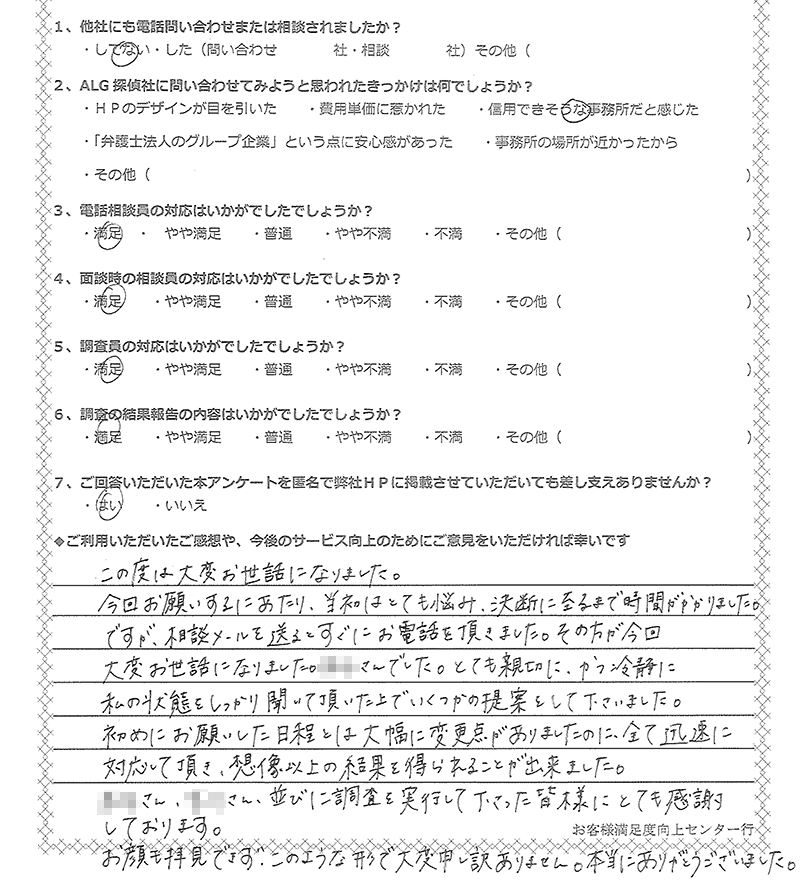 1、他社にも電話問い合わせまたは相談されましたか?
・してない・した（問い合わせ　　　社・相談　　　社）その他（
2、ALG探偵社に問い合わせてみようと思われたきっかけは何でしょうか?
・HPのデザインが目を引いた　・費用単価に惹かれた　・信用できそうな事務所だと感じた
・「弁護士法人のグループ企業」という点に安心感があった　・事務所の場所が近かったから
・その他（　　　）
3、電話相談員の対応はいかがでしたでしょうか?
・満足・　やや満足　・普通　・やや不満　・不満　・その他（　　　）
4、面談時の相談員の対応はいかがでしたでしょうか?
・満足　・やや満足　・普通　・やや不満　・不満　・その他（　　　）
5、調査員の対応はいかがでしたでしょうか?
・満足　・やや満足　・普通　・やや不満　・不満　・その他（　　　）
6、調査の結果報告の内容はいかがでしたでしょうか?
・満足　・やや満足　・普通　・やや不満　・不満　・その他（　　　）
7、ご回答いただいた本アンケートを匿名で弊社HPに掲載させていただいても差し支えありませんか?
・はい　・いいえ
◆ご利用いただいたご感想や、今後のサービス向上のためにご意見をいただければ幸いです
この度は大変お世話になりました。
今回お願いするにあたり、当初はとても悩み、決断に至るまで時間がかかりました。
ですが、相談メールを送るとすぐにお電話を頂きました。その方が今回
大変お世話になりました。さんでした。とても親切に、かつ冷静に
私の状態をしっかり聞いて頂いた上でいくつかの提案をして下さいました。
初めにお願いした日程とは大幅に変更点がありましたのに、全て迅速に
対応して頂き、想像以上の結果を得られることが出来ました。
さん、さん、並びに調査を実行して下さった皆様にとても感謝
しております。
お客様満足度向上センター行
お顔も拝見できず、このような形で大変申し訳ありません。本当にありがとうございました。